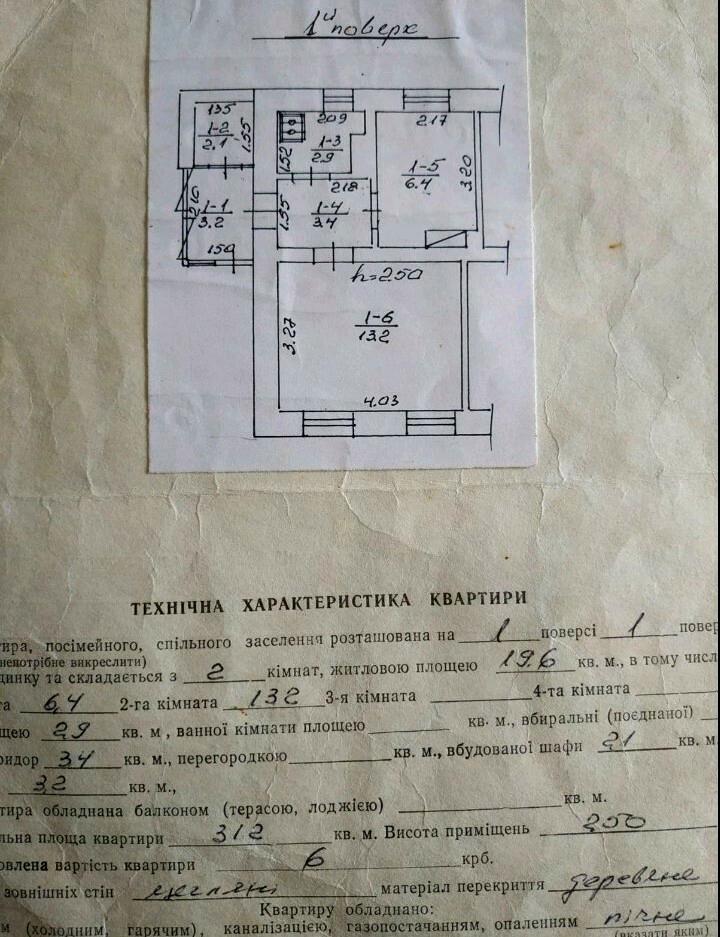 1й поверх
135
1-2
2.1
1.55
209
1-3
2.9
1.52
217
1-5
6.4
3.20
216
1-1
3.2
150
218
1-4
3.4
1.55
h=250
1-6
13.2
3.27
4.03
ТЕХНІЧНА ХАРАКТЕРИСТИКА КВАРТИРИ
тира, посімейного, спільного заселення розташована на 1 поверсі 1 повер
ненопотрібне викреслити)
динку та складається з 2 кімнат, житловою площею 19.6 кв. м., в тому числ
та 6,4 2-га кімната 13.2 3-я кімната 4-та кімната
щею 2.9 кв. м, ванної кімнати площею кв. м., вбиральні (поєднаної)
ридор 3.4 кв. м., перегородкою кв. м., вбудованої шафи 2.1 кв. м
3.2 кв. м.,
тира обладнана балконом (терасою, лоджією) кв. м.
льна площа квартири 31.2 кв. м. Висота приміщень 250
овлена вартість квартири 6 крб.
зовнішніх стін цегляні матеріал перекриття деревяне
Квартиру обладнано:
м (холодним, гарячим), каналізацією, газопостачанням, опаленням пічне
(вказати яким)